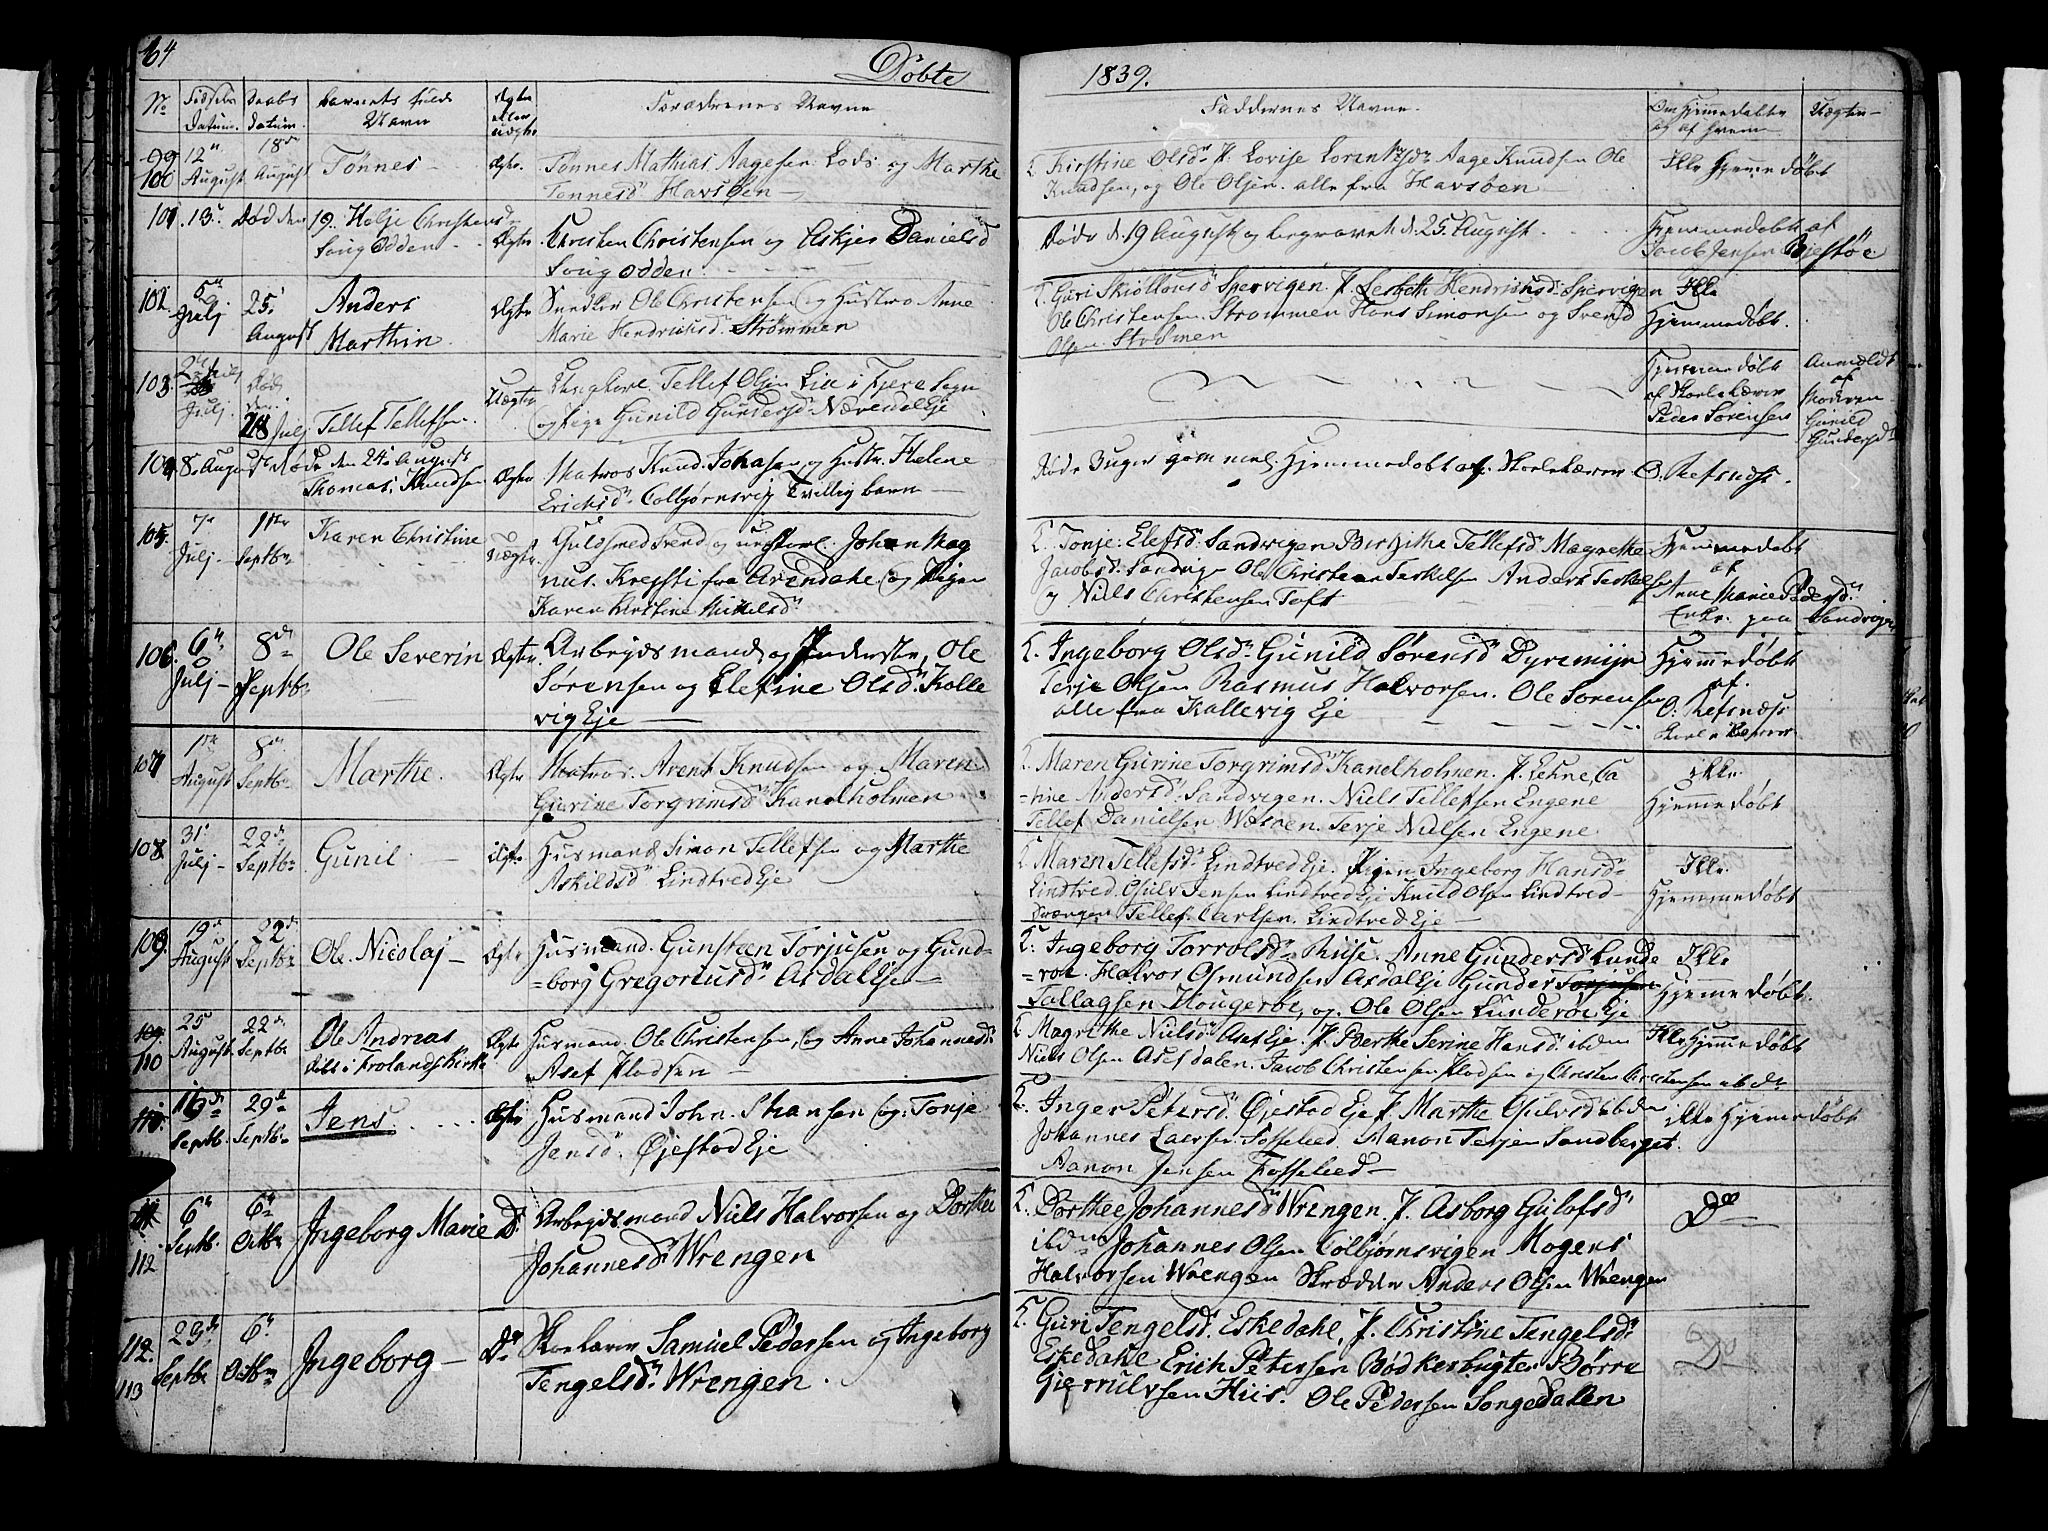 64
Døbte
1839.
No
Fødsels Datum.
Daabs Datum.
Barnets fulde Navn
Ægte eller uægte
Forældrenes Navne
Faddernes Navne.
Om Hjemmedøbte og af hvem
100
12 August
18de August
Tønnes
Ægte.
Tønnes Mathias Aagesen Lods og Marthe
Tønnesd Havsøen
Kirstine Olsd P. Lovise Lorentzsd Aage Knudsen Ole
Knudsen, og Ole Olsen. alle fra Havsøen
Ikke Hjemmedøbt
101
13. Død den 19. Holje Christensd
Songodden
Ægte.
Christen Christensen og Askjer Danielsd
Songodden
Døde d. 19 August og begravet d. 25. August.
Hjemmedøbt af
Jacob Jensen Biestøe
102.
5 Julj
25 August
Anders
Marthin.
Ægte
Ole Christensen og Hustroe Anne
Marie Hendriksd. Strømmen
Guri Skiøllousd Spervigen. P. Lesbeth Hendriksd. Spervigen
Ole Christensen Strømmen Hans Simonsen og Svend
Olsen
Ikke
Hjemmedøbt.
103
Julj
Død den
28 Julj
Tellef Tellefsen
Uægte
Ungkarl Tellef Olsen Lie i Fjere Sogn
og Pige Gunild Gundersd. Nævesdal Eje
Hjemmedøbt
af Skolelærer
Peder Sørensen
Anmeldt
af
Moderen
Gunild
Gundersd
104
8. August Døde den 24. August
Thomas Knudsen
Ægte
Matros Knud Johnsen og Hustr. Helene
Ericksd. Colbjørnsvig Tvillingbarn
Døde 3 Uger gammel. Hjemmedøbt af Skolelærer O. Refsnæs.
105.
7de Julj
1ste Septbr
Karen Christine
Uægte.
Guldsmed Svend og Johan Mag
nus. Krefsti fra Arendahl og Pigen
Karen Kirstine Nielsd
Tonje Elefsd. Sandvigen Birgithe Tellefsd Magrethe
Jacobsd. Sandvigen Ole Christian Terkelsen Anders Terkelsen
og Niels Christensen Toft
Hjemmedøbt
af
Anne Marie Pedersd.
Enke paa Sandvigen
106.
6 Julj
8de Septbr
Ole Severin
Ægte.
Arbejdsmand og Inderste, Ole
Sørensen og Elefine Olsd. Kolle
vig Eje
Ingeborg Olsd Gunild Sørensd Dyremijr
Terje Olsen Rasmus Halvorsen. Ole Sørensen
alle fra Kallevig Eje
Hjemmedøbt
af.
O: Refsnæs
Skolelærer
107
1ste August
8de Septbr
Marthe.
Ægte
Matros. Arent Knudsen og Maren
Gurine Torgrimsd Kanelholmen
Maren Gurine Torgrimsd Kanelholmen. P. Lehne, Ca
tine Andersd. Sandvigen. Niels Tellefsen Engene
Tellef Danielsen Wesøen. Terje Nielsen Engene
ikke
Hjemmedøbt
108.
31 Julj
22de Septbr
Gunil
Ægte
Husmand Simon Tellefsen og Marthe
Askildsd. Lindtved Eje
Maren Tellefsd. Lindtved Eje. Pigen Ingeborg Hansd.
Lindtved. Gsulv Jensen Lindtved Eje Knud Olsen Lindtved
Tellef Carlsen. Lindtved Eje
Ikke
Hjemmedøbt
109.
19de August
22de Septbr
Ole Nicolaj
Ægte
Husmand. Gunsteen Torjusen og Gund-
borg Gregoriusd. Asdal Eje
Ingeborg Tarrolsd. Riise. Anne Gundersd Lunde
røe. Halvor Osmundsen Asdal Eje Gunder Torjusen
Tallagsen Hougerøe, og. Ole Olsen Lunderøe Eje
Ikke
Hjemmedøbt.
109.
110
25 August
22de Septbr
Ole Andreas
døbt i Frolands Kirke
Ægte
Husmand. Ole Christensen, og Anne Johannesd.
Asef Pladsen
Magrethe Nielsd. Asef Eje. P. Berthe Serine Hansd. ibdm
Niels Olsen Asefdalen. Jacob Christensen Pladsen og Christen Christensen ibdm
Ikke Hjemmedøbt
110.
16de Septbr.
29de Septbr
Jens
Ægte
Husmand John. Skansen og: Tonje
Jensd. Øjestad Eje
Inger Petersd. Øjestad Eje P. Marthe Gsulvsd ibdm
Johannes Laersen. Fosselied. Manon Terjesen Sandberget.
Aanon Jensen Fosselied
ikke Hjemmedøbt
112
6 Septb.
6 Octbr
Ingeborg Marie
Do
Arbejdsmand Niels Halvorsen og Dorthe
Johannesd. Wrengen
Dorthee Johannesd Wrengen. P. Asborg Gulofsd
ibdm Johannes Olsen Colbjørnsvigen Mogens
Halvorsen Wrengen Skrædder Anders Olsen Wrengen
Do
112.
113
23de Septbr
6 Octbr
Ingeborg
Do
Skolelærer Samuel Pedersen og Ingeborg
Tengelsd. Wrengen.
Guri Tengelsd. Eskedahl, P. Christine Tengelsd.
Eskedahl Erich Petersen Bødkerbugten Børre
Gjerrulvsen Hiis. Ole Pedersen Songedalen
Do